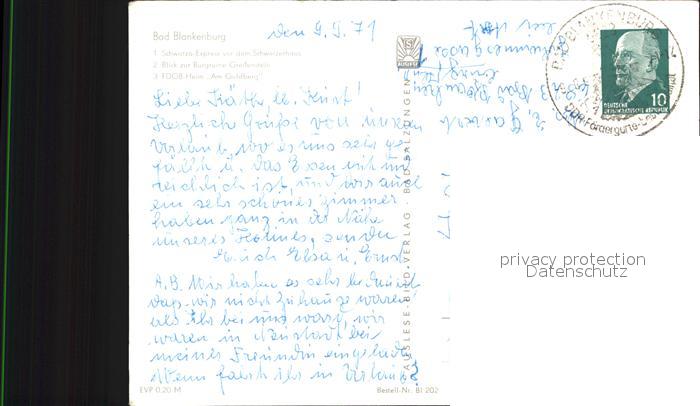 Bad Blankenburg
1 Schwarza-Express vor dem Schweizerhaus
2 Blick zur Burgruine Greifenstein
3 FDGB-Heim „Am Goldberg"
den 9.9.71
Liebe Käthe u. Kurt!
Herzliche Grüße von unsern
Urlaub, wo es uns sehr ge-
fällt u. das Essen mit
reichlich ist, und wir auch
ein sehr schönes Zimmer
haben ganz in der Nähe
unseres Heimes, senden
Euch Elsa u. Ernst
A.B. Wir haben es sehr bedauert
das wir nicht zuhause waren
als Ihr bei uns wart, wir
waren in Neustadt bei
meiner Freundin eingeladen
Wenn fahrt ihr in Urlaub?
EVP 0,20 M
Bestell-Nr. BI 202
AUSLESE-BILD-VERLAG · BAD SALZUNGEN
AUSLESE
BLANKENBURG
DEUTSCHE
DEMOKRATISCHE REPUBLIK
10
privacy protection
Datenschutz